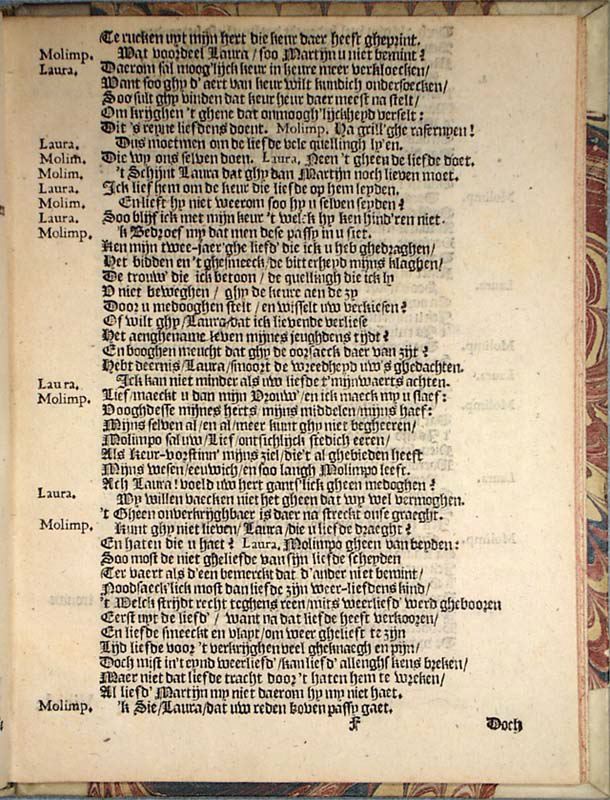 Te rucken uyt mijn hert die keur daer heeft gheprint.
Molimp. Wat voordeel Laura / soo Martijn u niet bemint?
Laura. Daerom sal moog'lijck keur in keure meer verkloecken /
Want soo ghy d'aert van keur wilt kundich ondersoecken /
Soo sult ghy vinden dat keur heur daer meest na stelt /
Om krijghen 't ghene dat onmoogh'lijckheyd verselt:
Dit 's reyne liefdens doent. Molimp. Ha grill'ghe rasernyen!
Laura. Dus moetmen om de liefde vele quellingh ly'en.
Molim. Die wy ons selven doen. Laura. Neen 't gheen de liefde doet.
Molim. 't Schijnt Laura dat ghy dan Martijn noch lieven moet.
Laura. Ick lief hem om de keur die liefde op hem leyden.
Molim. En lieft hy niet weerom soo hy u selven seyden?
Laura. Soo blijf ick met mijn keur 't welck hy ken hind'ren niet.
Molimp. 'k Bedroef my dat men dese passy in u siet.
Ken mijn twee-jaer'ghe liefd' die ick u heb ghedraghen /
Het bidden en 't ghesmeeck / de bitterheyd mijns klaghen /
De trouw' die ick betoon / de quellingh die ick ly
V niet beweghen / ghy de keure aen de zy
Door u medooghen stelt / en wisselt uw verkiesen?
Of wilt ghy / Laura / dat ick lievende verliese
Het aenghename leven mijnes jeughdens tijdt?
En booghen meucht dat ghy de oorsaeck daer van zijt?
Hebt deernis / Laura / smoort de wreedheyd uw's ghedachten.
Laura. Ick kan niet minder als uw liefde t'mijnwaerts achten.
Molimp. Lief / maeckt u dan mijn Vrouw / en ick maeck my u slaef:
Vooghdesse mijnes herts / mijns middelen / mijns haef:
Mijns selven al / en al / meer kunt ghy niet begheeren /
Molimpo sal uw / Lief / ontsichlijck stedich eeren /
Als Keur-vorstinn' mijns ziel / die't al ghebieden heeft
Mijns wesen / eeuwich / en soo langh Molimpo leeft.
Ach Laura! voeld uw hert gants'lick gheen medoghen?
Laura. Wy willen vaecken niet het gheen dat wy wel vermoghen.
't Gheen onverkrijghbaer is daer na streckt onse graeght.
Molimp. Kunt ghy niet lieven / Laura / die u liefde draeght?
En haten die u haet? Laura. Molimpo gheen van beyden:
Soo most de niet gheliefde van sijn liefde scheyden
Ter vaert als d'een bemerckt dat d'ander niet bemint /
Noodsaeck'lick most dan liefde zijn weer-liefdens kind /
't Welck strijdt recht teghens reen / mits weerliefd' werd ghebooren
Eerst uyt de liefd' / want na dat liefde heeft verkooren /
En liefde smeeckt en vlayt / om weer ghelieft te zijn
Lijd liefde voor 't verkrijghen veel gheknaegh en pijn /
Doch mist in't eynd weerliefd' / kan liefd' allenghskens breken /
Maer niet dat liefde tracht door 't haten hem te wreken /
Al liefd' Martijn my niet daerom hy my niet haet.
Molimp. 'k Sie / Laura / dat uw reden boven passy gaet.
F Doch